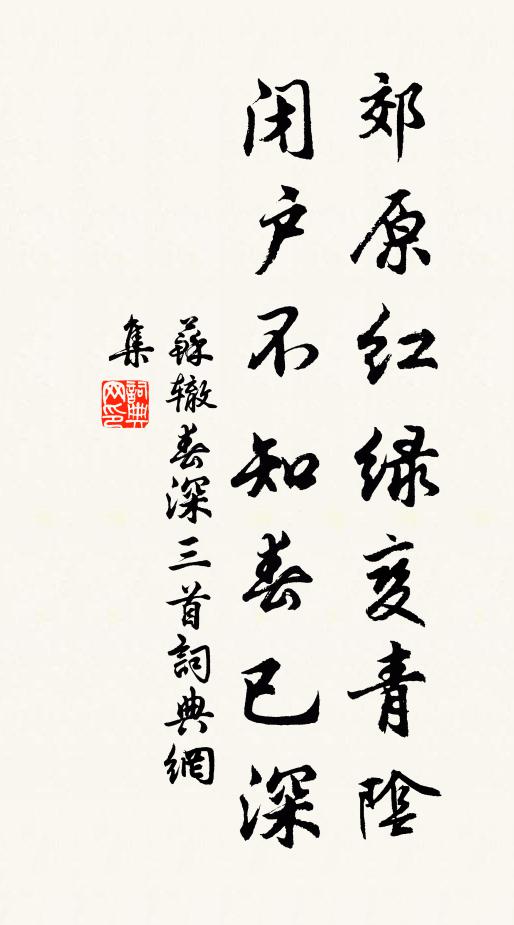 郊原红绿变青陰
闭户不知春已深
蘇辙春深三首詞典網
集
詞典
网印